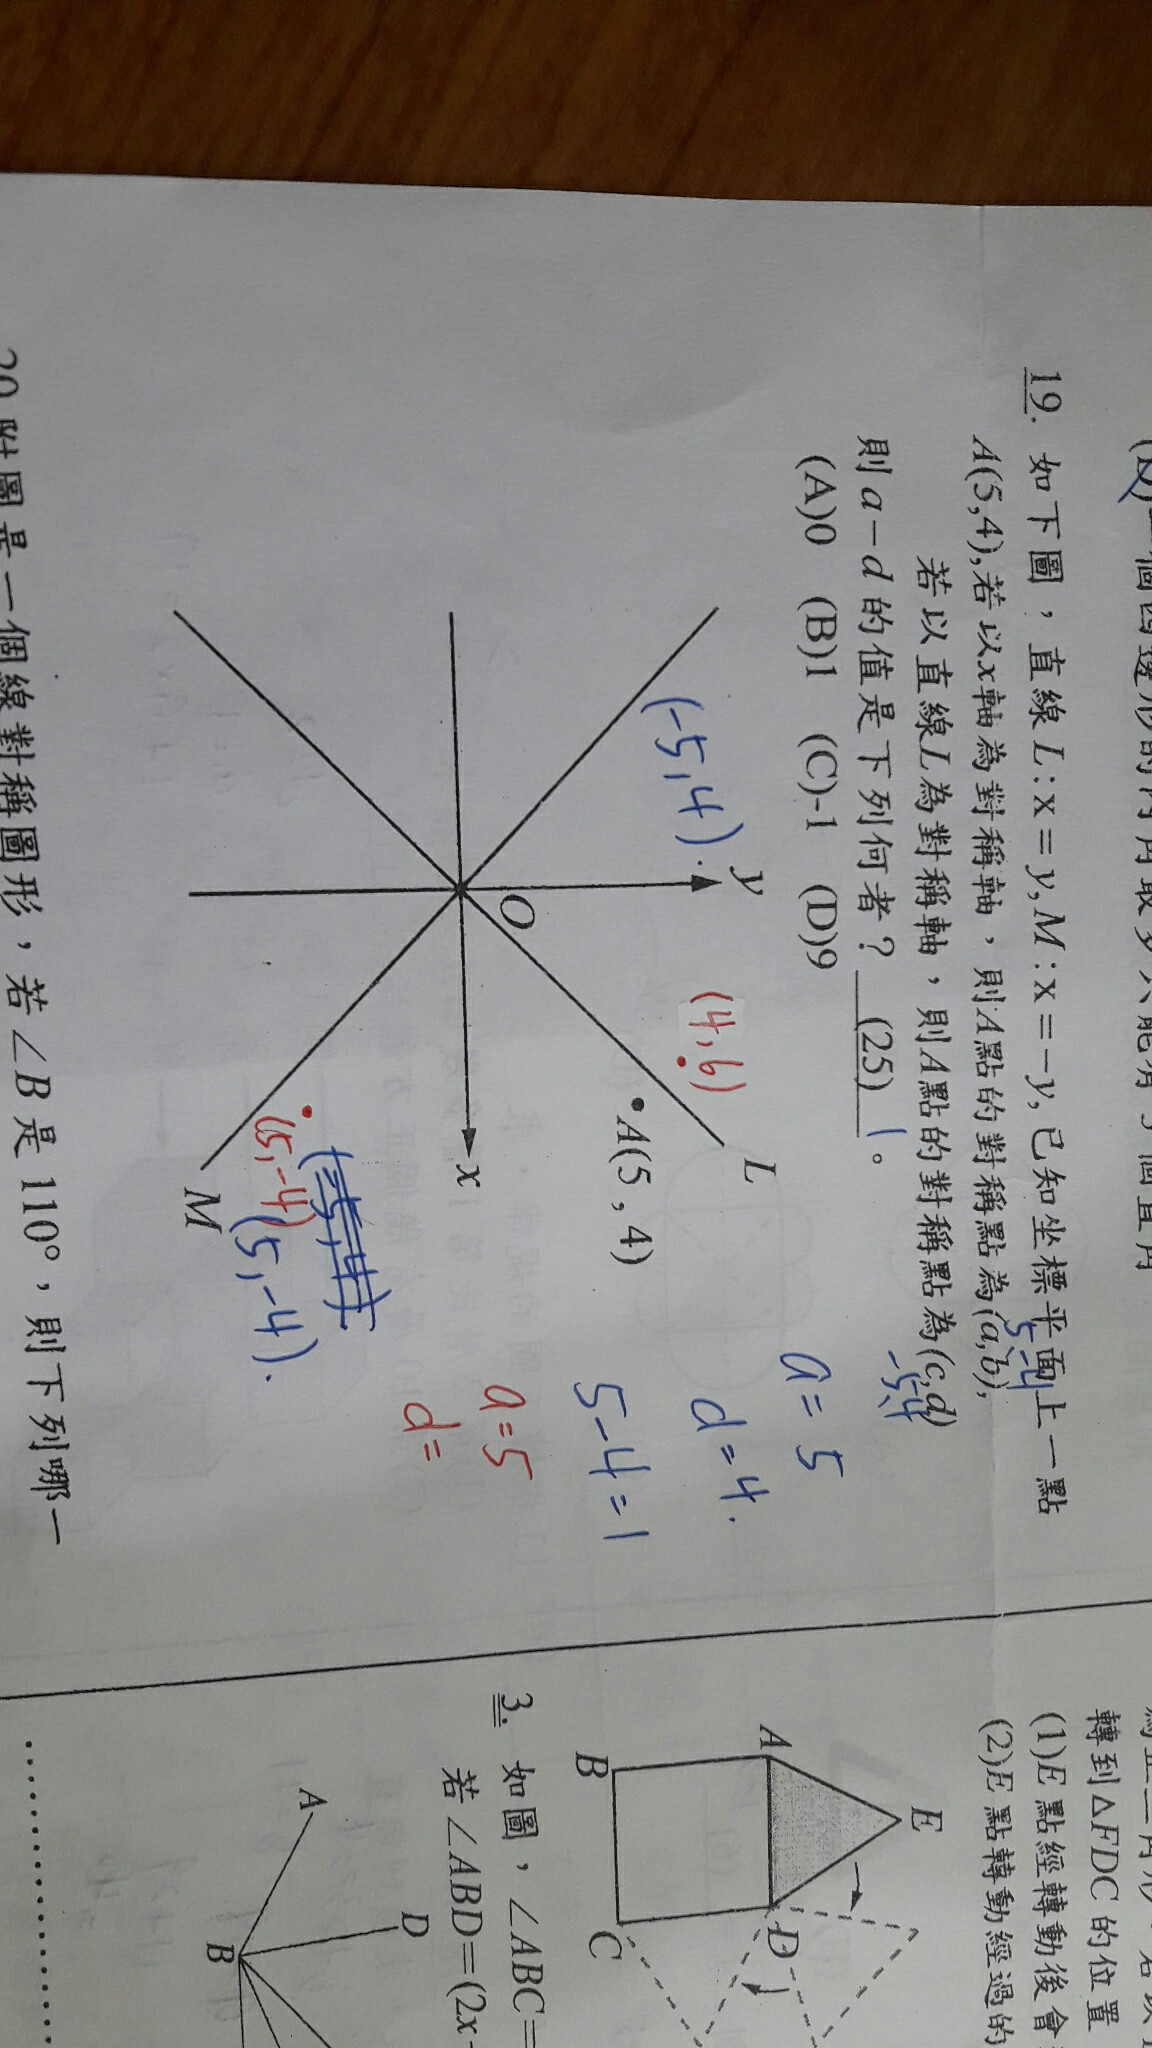 19. 如下圖，直線L:x=y,M:x=-y,已知坐標平面上一點
A(5,4),若以x軸為對稱軸，則A點的對稱點為(a,b),
5 -4
若以直線L為對稱軸，則A點的對稱點為(c,d)
-5,4
則a-d的值是下列何者？ (25) 1 。
(A)0 (B)1 (C)-1 (D)9
a=5
d=4.
5-4=1
a=5
d=
y
L
(-5,4).
A(5,4)
O
x
(5,-4)
(5,-4).
M
附圖是一個線對稱圖形，若∠B是110°，則下列哪一
轉到△FDC的位置
(1)E點經轉動後會
(2)E點轉動經過的
E
A
D
B
C
3. 如圖，∠ABC=
若∠ABD=(2x
A
D
B